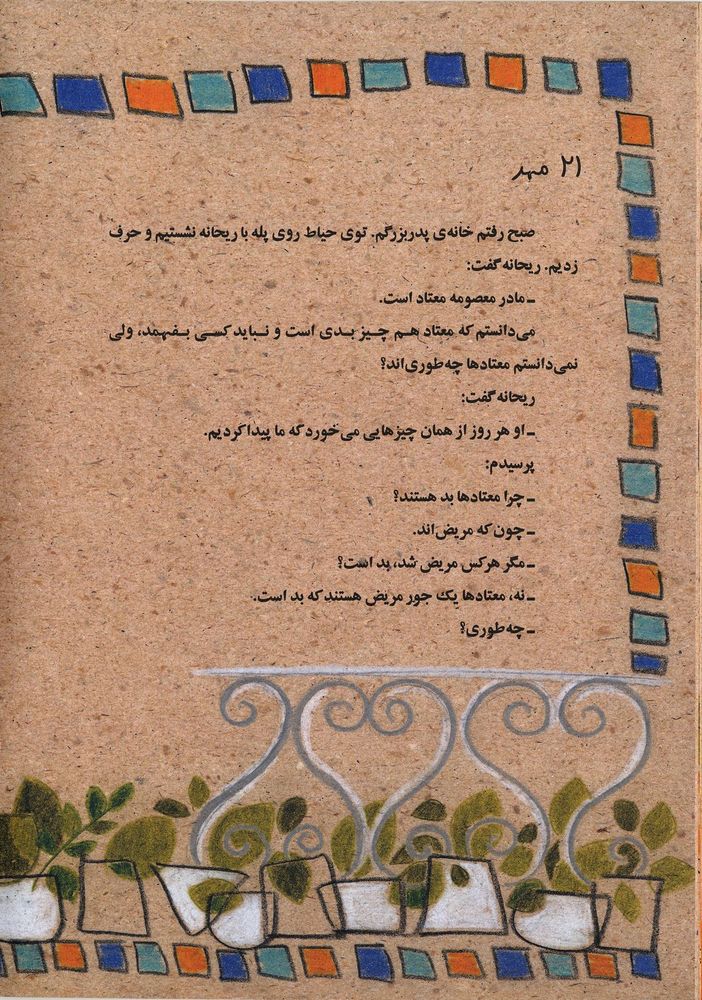 ۲۱ مهر
صبح رفتم خانه‌ی پدربزرگم. توی حیاط روی پله با ریحانه نشستیم و حرف
زدیم. ریحانه گفت:
ـ مادر معصومه معتاد است.
می‌دانستم که معتاد هم چیز بدی است و نباید کسی بفهمد، ولی
نمی‌دانستم معتادها چه‌طوری‌اند؟
ریحانه گفت:
ـ او هر روز از همان چیزهایی می‌خورد که ما پیدا کردیم.
پرسیدم:
ـ چرا معتادها بد هستند؟
ـ چون که مریض‌اند.
ـ مگر هرکس مریض شد، بد است؟
ـ نه، معتادها یك جور مریض هستند که بد است.
ـ چه‌طوری؟